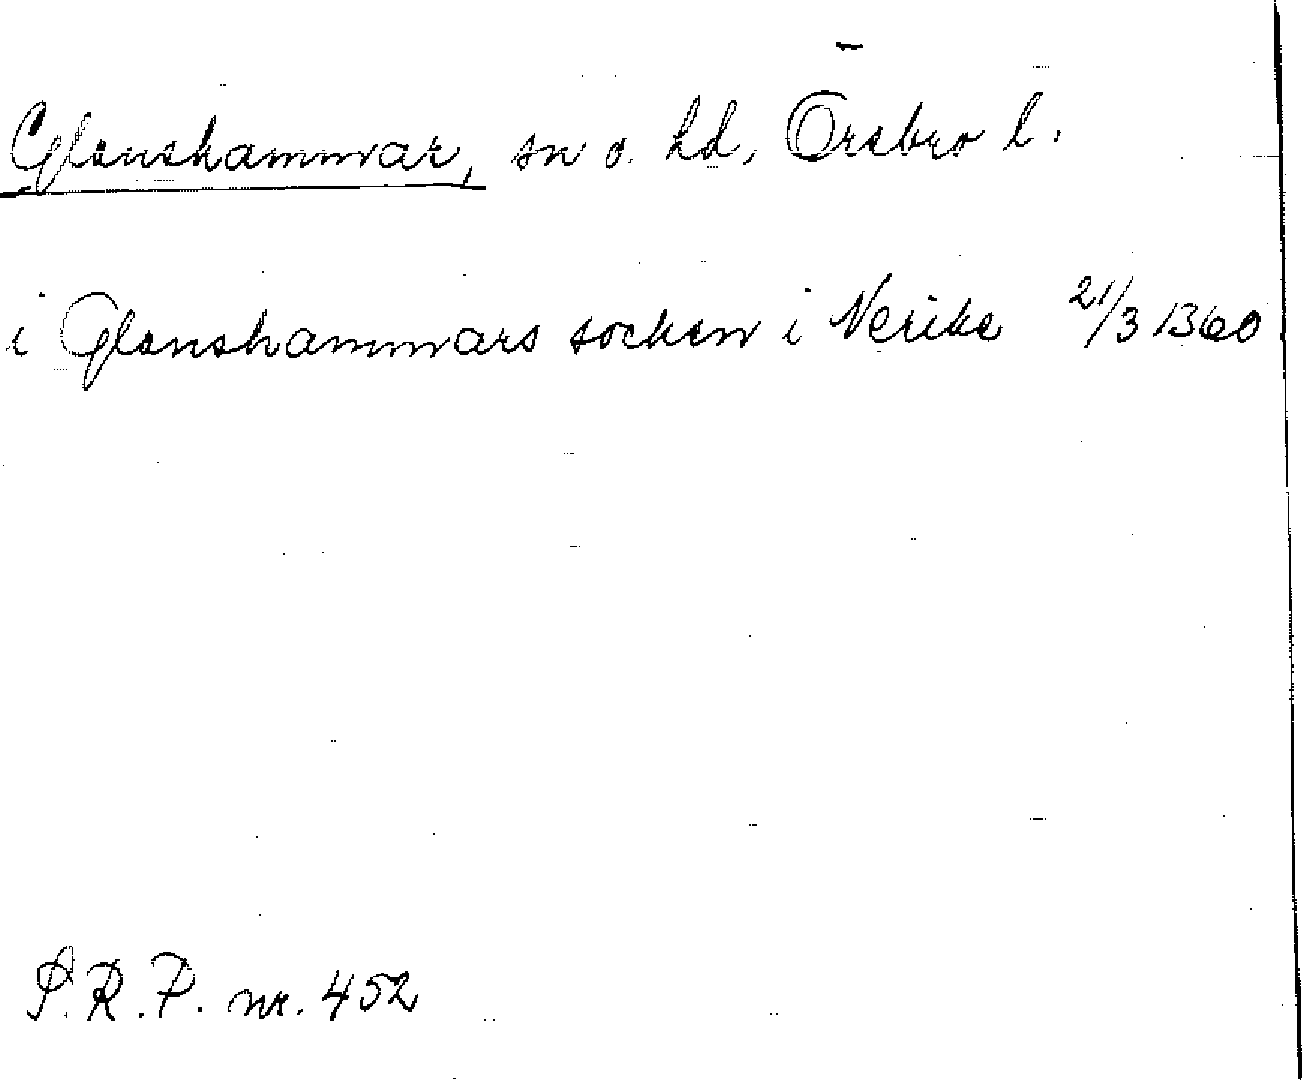 Glanshammar, sn o. hd, Örebro l.
i Glanshammars socken i Nerike 21/3 1360
P.R.P. nr. 452